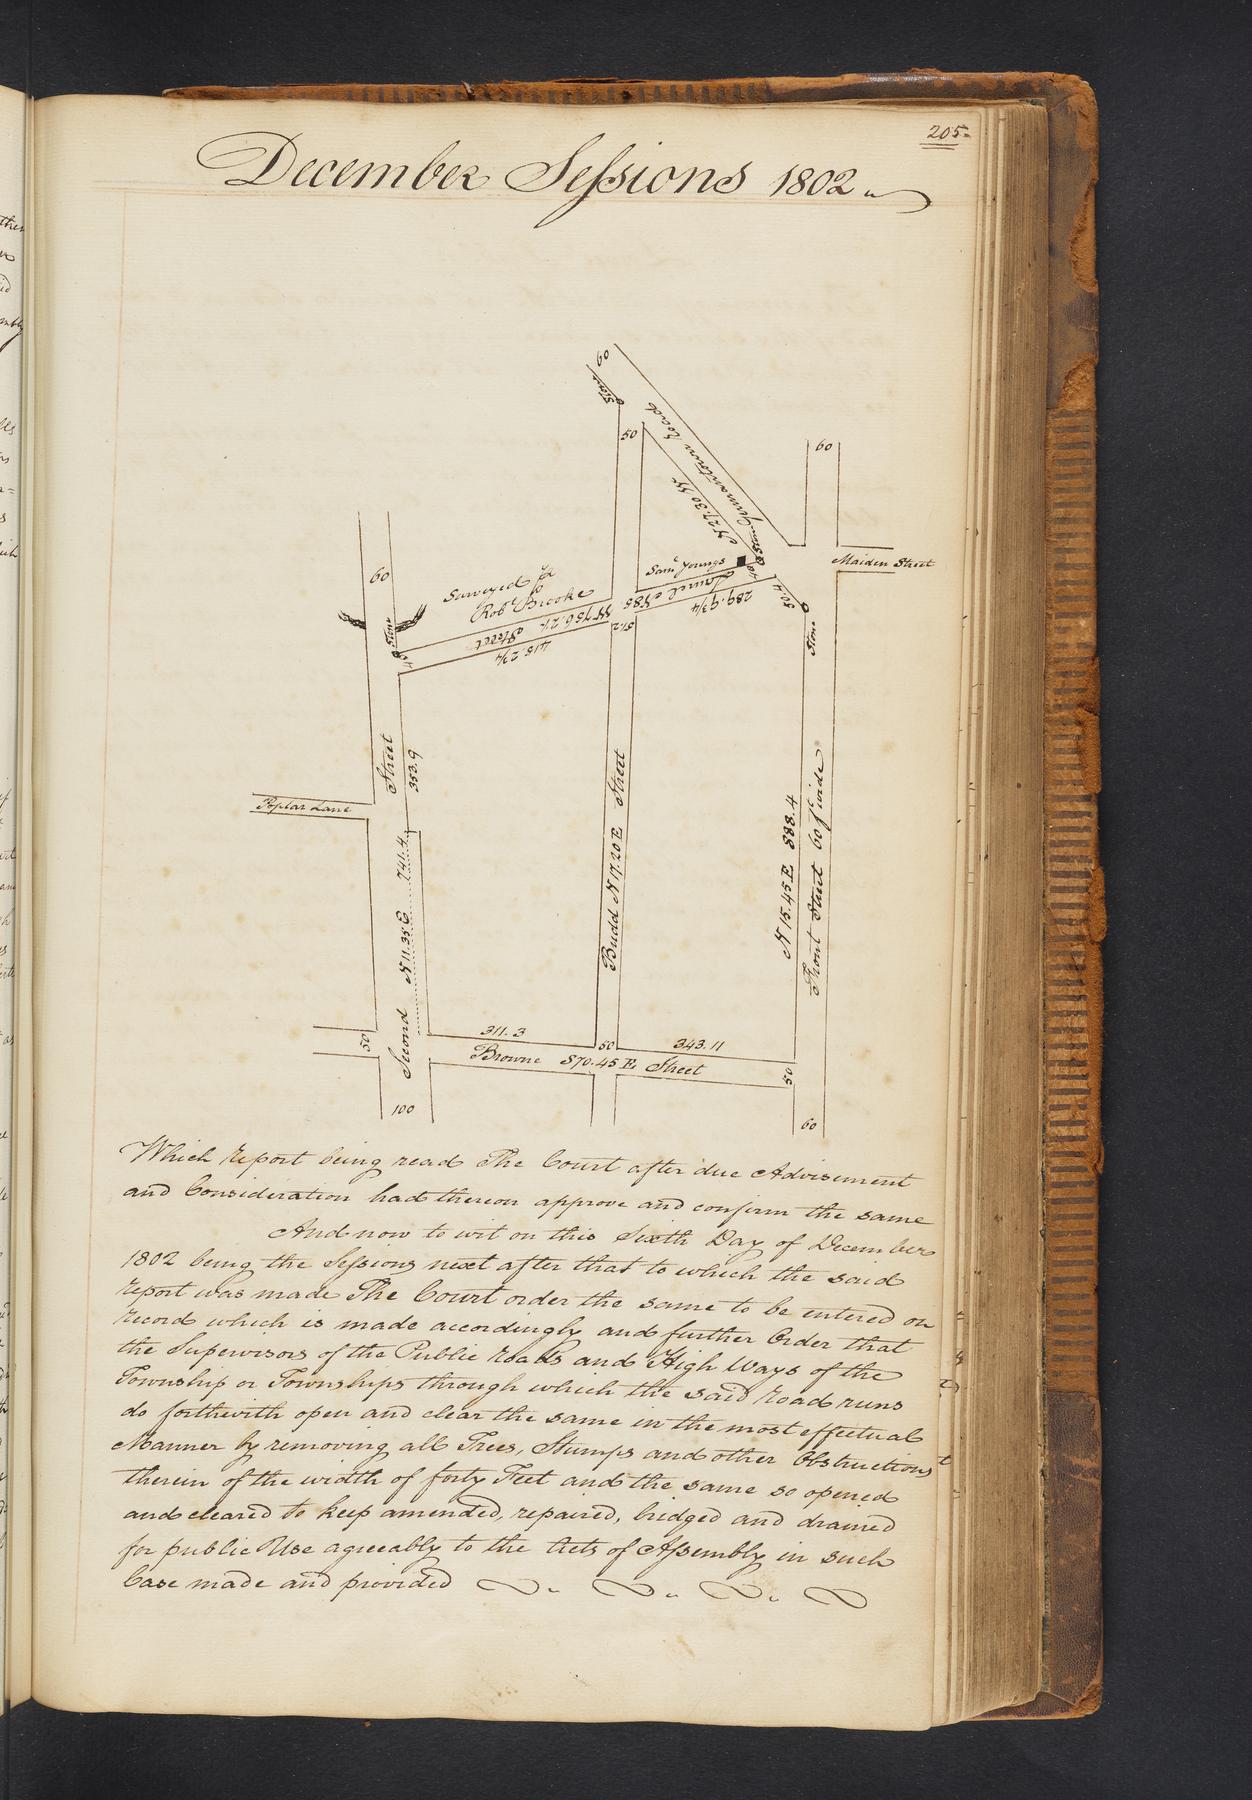 205
December Sessions 1802
60
Stone
50
Germantown Road
N 27.30 W
60
Stone
Maiden Street
Sam.l Youngs
40
Laurel S 85
289.9 3/4
50.4
60
Surveyed by
Rob.t Brooke
W 756.2 1/2
Street
418.2 3/4
51.2
Stone
Stone
40
Street
353.9
Poplar Lane
Budd N 17.20 E Street
N 15.45 E 888.4
Front Street 60 ft wide
Second N 11.35 E 741.4
50
311.3
50
343.11
Browne S 70.45 E Street
50
100
60
Which report being read The Court after due Advisement
and Consideration had thereon approve and confirm the same
And now to wit on this Sixth Day of December
1802 being the Sessions next after that to which the said
report was made The Court order the same to be entered on
record which is made accordingly and further Order that
the Supervisors of the Public Roads and High Ways of the
Township or Townships through which the said road runs
do forthwith open and clear the same in the most effectual
Manner by removing all Trees, Stumps and other Obstructions
therein of the width of forty Feet and the same so opened
and cleared to keep amended, repaired, bridged and drained
for public Use agreeably to the Acts of Assembly in such
Case made and provided